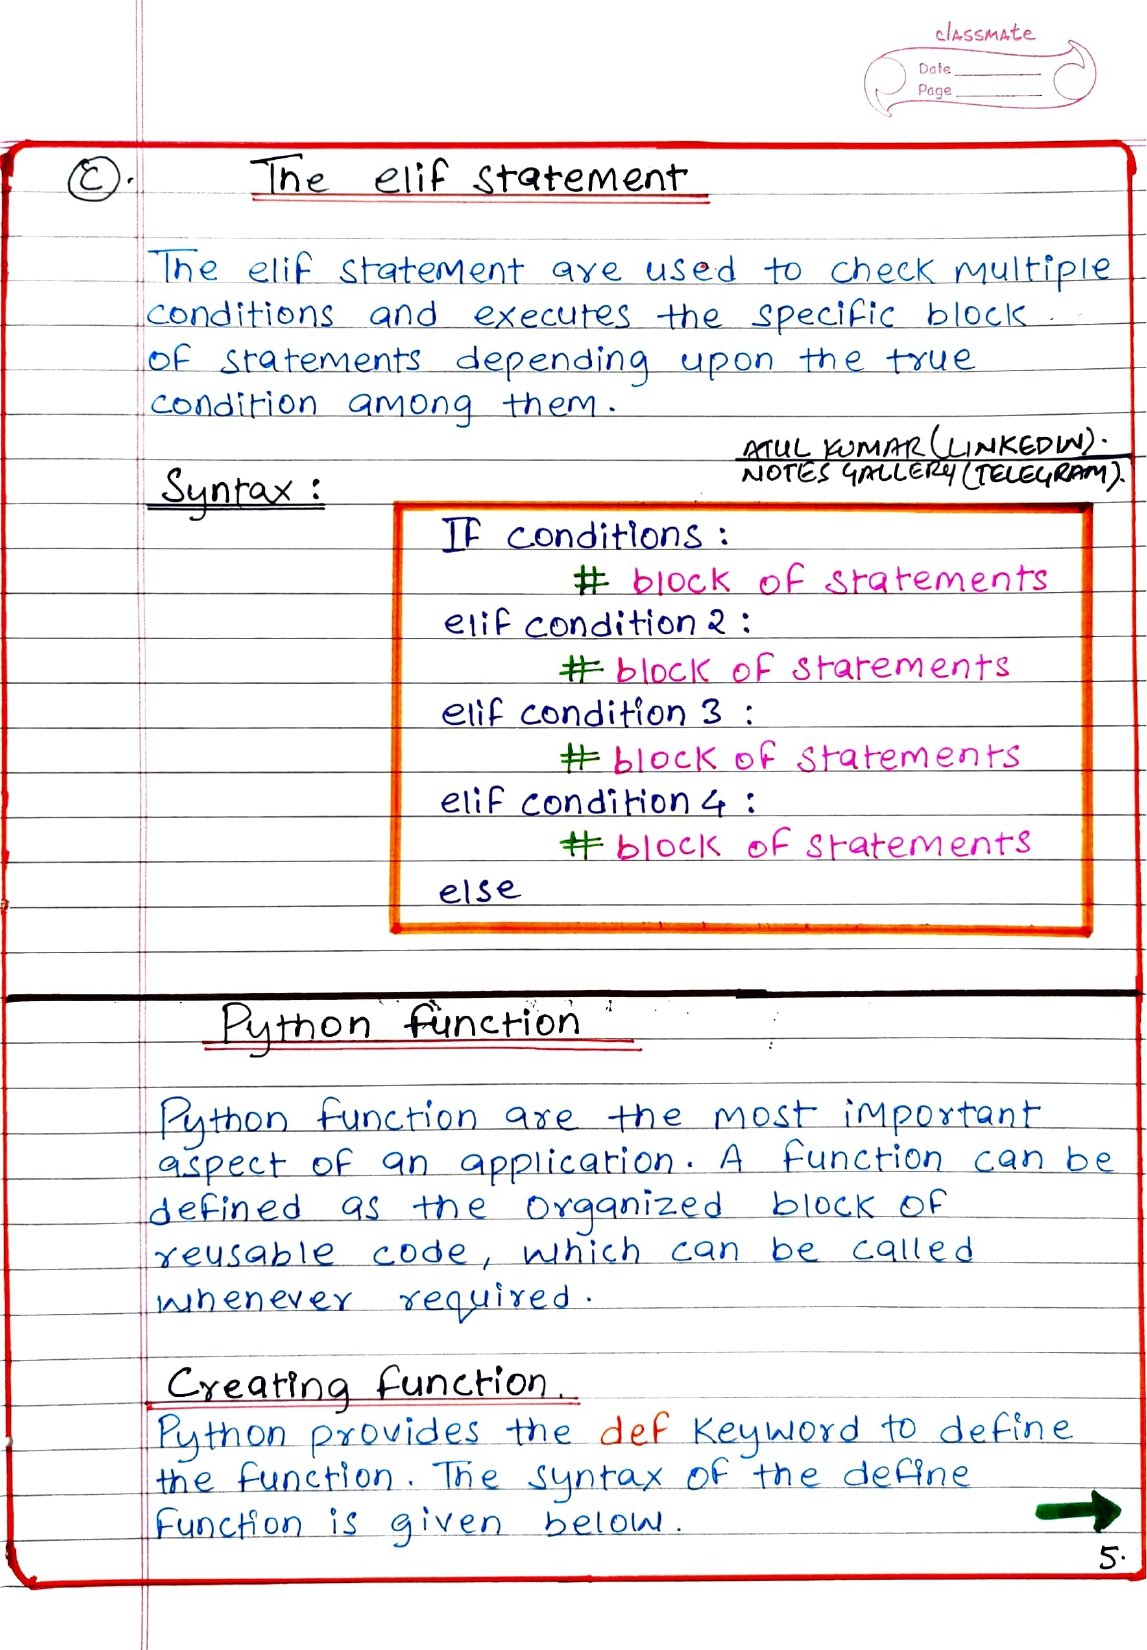 classmate
Date
Page
C.
The elif statement
The elif statement are used to check multiple
conditions and executes the specific block
of statements depending upon the true
condition among them.
ATUL KUMAR (LINKEDIN).
NOTES GALLERY (TELEGRAM).
Syntax :
If conditions :
# block of statements
elif condition 2 :
# block of statements
elif condition 3 :
# block of statements
elif condition 4 :
# block of statements
else
Python function
Python function are the most important
aspect of an application. A function can be
defined as the organized block of
reusable code, which can be called
whenever required.
Creating function.
Python provides the def keyword to define
the function. The syntax of the define
function is given below.
5.